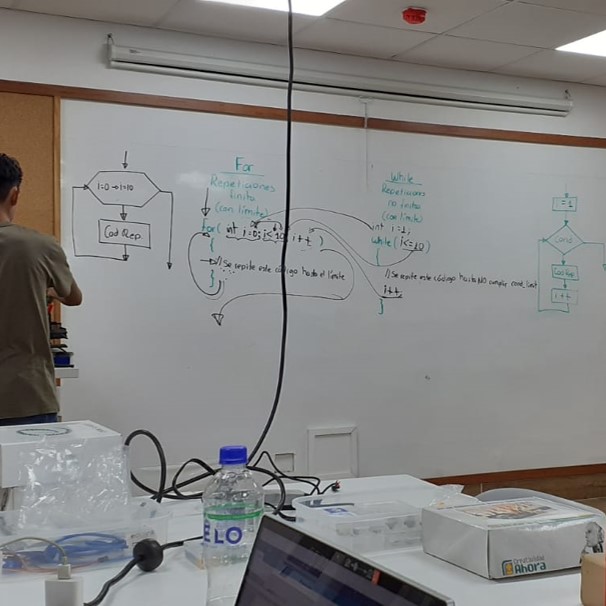 i=0 → i=10
Cod Rep.
For
Repeticiones
finita
(con límite)
for( int i=0; i<10; i++ )
{
// Se repite este código hasta el límite
}
While
Repeticiones
no finita
(con límite)
int i=1;
while( i<=10 )
{
// Se repite este código hasta NO cumplir cond_limit
i++
}
i=1
Cond
Cod Rep
i++
ELO
Ahora